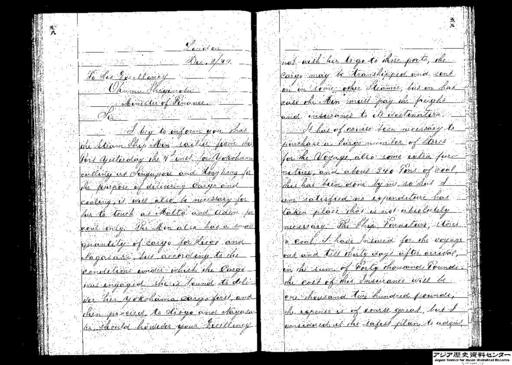 London
Dec. 2/74.
To His Excellency
Okuma Shigenobu
Minister of Finance.
Sir
I beg to inform you that
the Steam Ship Men sailed from the
Port Yesterday the 1st inst for Yokohama
calling at Singapore and Hong Kong for
the purpose of delivering Cargo and
coaling, it will also be necessary for
her to touch at Malta and Aden for
coal only. The Men also has a small
quantity of cargo for Hiogo and
Nagasaki, but according to the
conditions under which the Cargo
was engaged she is bound to deli-
ver her Yokohama cargo first, and
then proceed to Hiogo and Nagasa-
ki, should however your Excellency
not wish her to go to these ports, the
cargo may be transhipped and sent
on in some other Steamer, but in this
case the Men must pay the freight
and insurance to its destination.
It has of course been necessary to
purchase a large number of Stores
for the Voyage also some extra fur-
niture, and about 340 Tons of Coal,
this has been done by me so that I
am satisfied no expenditure has
taken place that is not absolutely
necessary. The Ship, Furniture, Stores
& Coal I have Insured for the voyage
out and till thirty days after arrival,
in the sum of Forty thousand Pounds.
the cost of this Insurance will be
one thousand two hundred pounds,
the expense is of course great, but I
considered it the safest plan to adopt
アジア歴史資料センター
Japan Center for Asian Historical Records